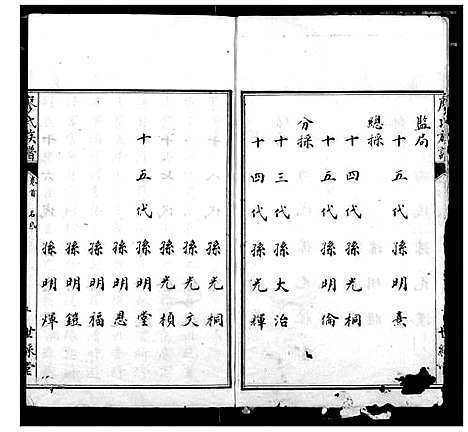 監局
十五代孫明熹
總採
十四代孫光桐
十五代孫明倫
分採
十三代孫大治
十四代孫光輝
孫光桐
孫光文
孫光楨
十五代孫明堂
孫明恩
孫明福
孫明鎧
孫明煇
廖氏族譜
卷首
世綵堂